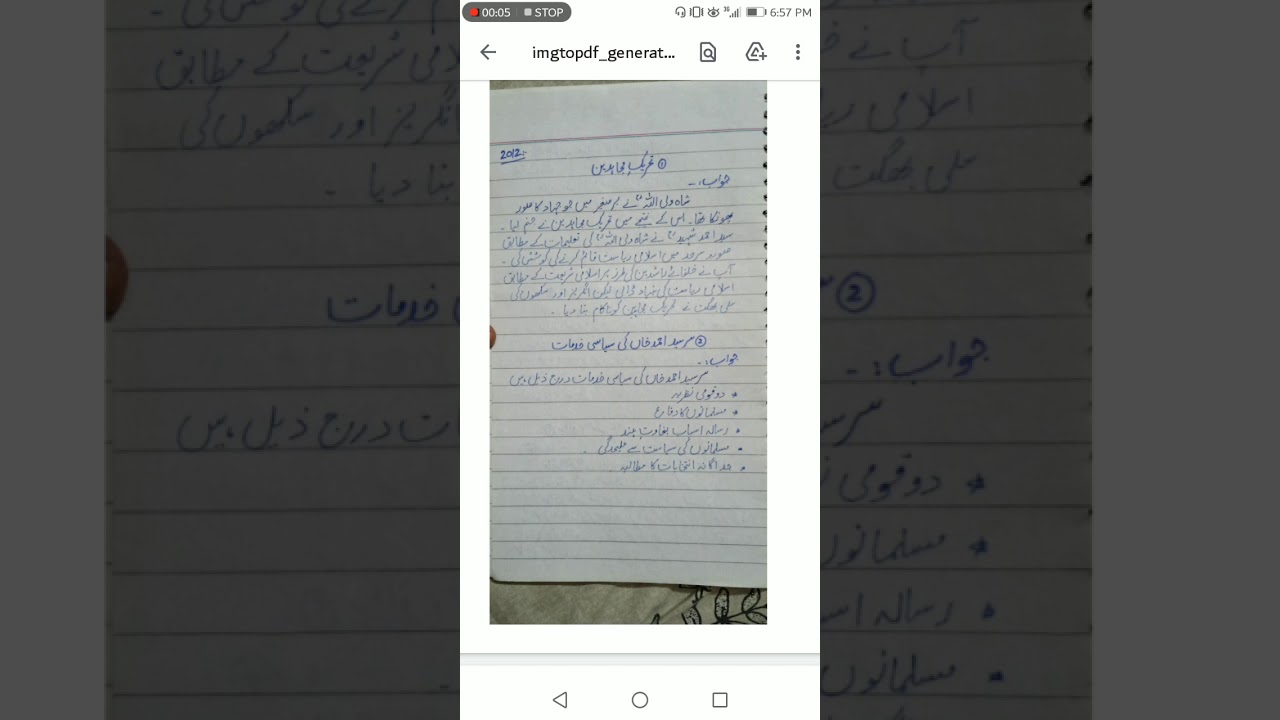 00:05 STOP 3G 6:57 PM
imgtopdf_generat...
2012:
① تحریک مجاہدین
جواب:۔
شاہ ولی اللہؒ نے برصغیر میں جو جہاد کا صور
پھونکا تھا۔ اس کے نتیجے میں تحریک مجاہدین نے جنم لیا۔
سید احمد شہیدؒ نے شاہ ولی اللہؒ کی تعلیمات کے مطابق
صوبہ سرحد میں اسلامی ریاست قائم کرنے کی کوشش کی۔
آپ نے خلفائے راشدین کی طرز پر اسلامی شریعت کے مطابق
اسلامی ریاست کی بنیاد ڈالی لیکن انگریز اور سکھوں کی
ملی بھگت نے تحریک مجاہدین کو ناکام بنا دیا۔
② سرسید احمد خاں کی سیاسی خدمات
جواب:۔
سرسید احمد خاں کی سیاسی خدمات درج ذیل ہیں
* دو قومی نظریہ
* مسلمانوں کا دفاع
* رسالہ اسباب بغاوت ہند
* مسلمانوں کی سیاست سے علیحدگی
* جداگانہ انتخابات کا مطالبہ